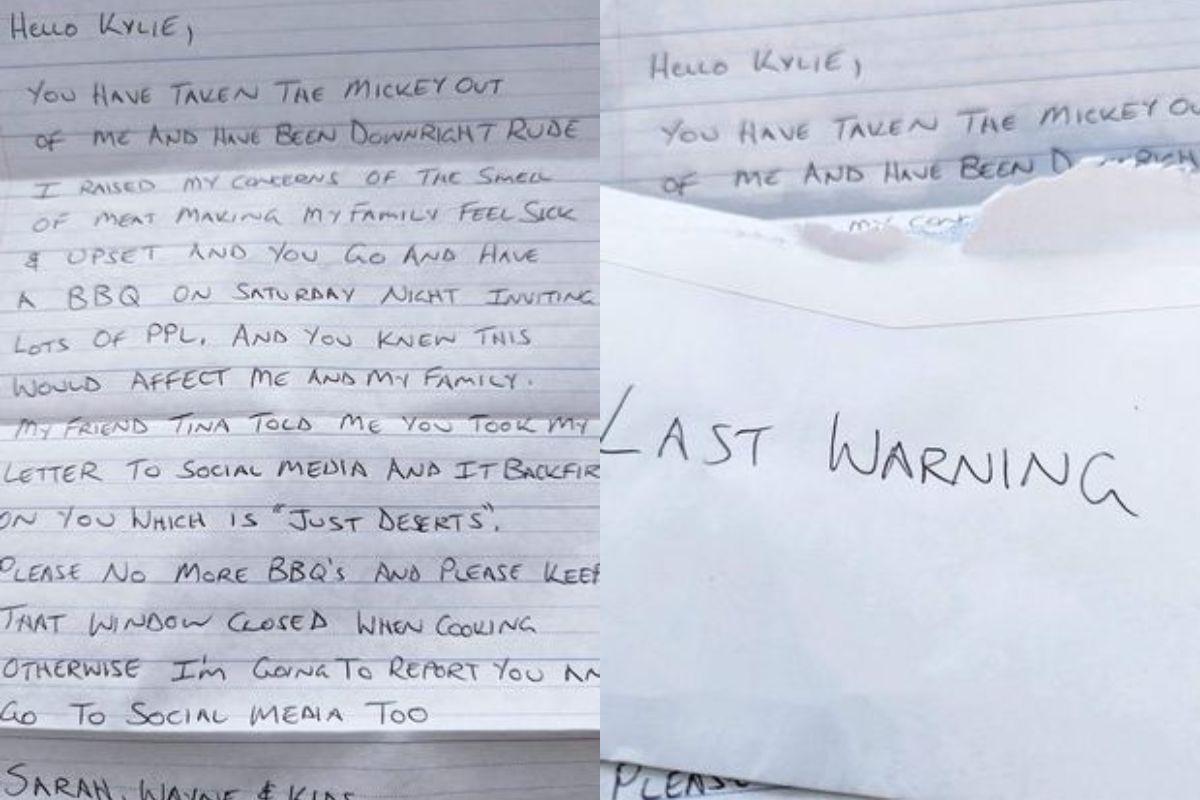 Hello Kylie,
You have taken the mickey out
of me and have been downright rude
I raised my concerns of the smell
of meat making my family feel sick
& upset and you go and have
a BBQ on Saturday night inviting
lots of ppl. And you knew this
would affect me and my family.
My friend Tina told me you took my
letter to social media and it backfir
on you which is "Just deserts".
Please no more BBQ's and please keep
that window closed when cooking
otherwise I'm going to report you an
go to social media too
Sarah, Wayne & kids
Hello Kylie,
You have taken the mickey ou
of me and have been d
my con
Last Warning
Please